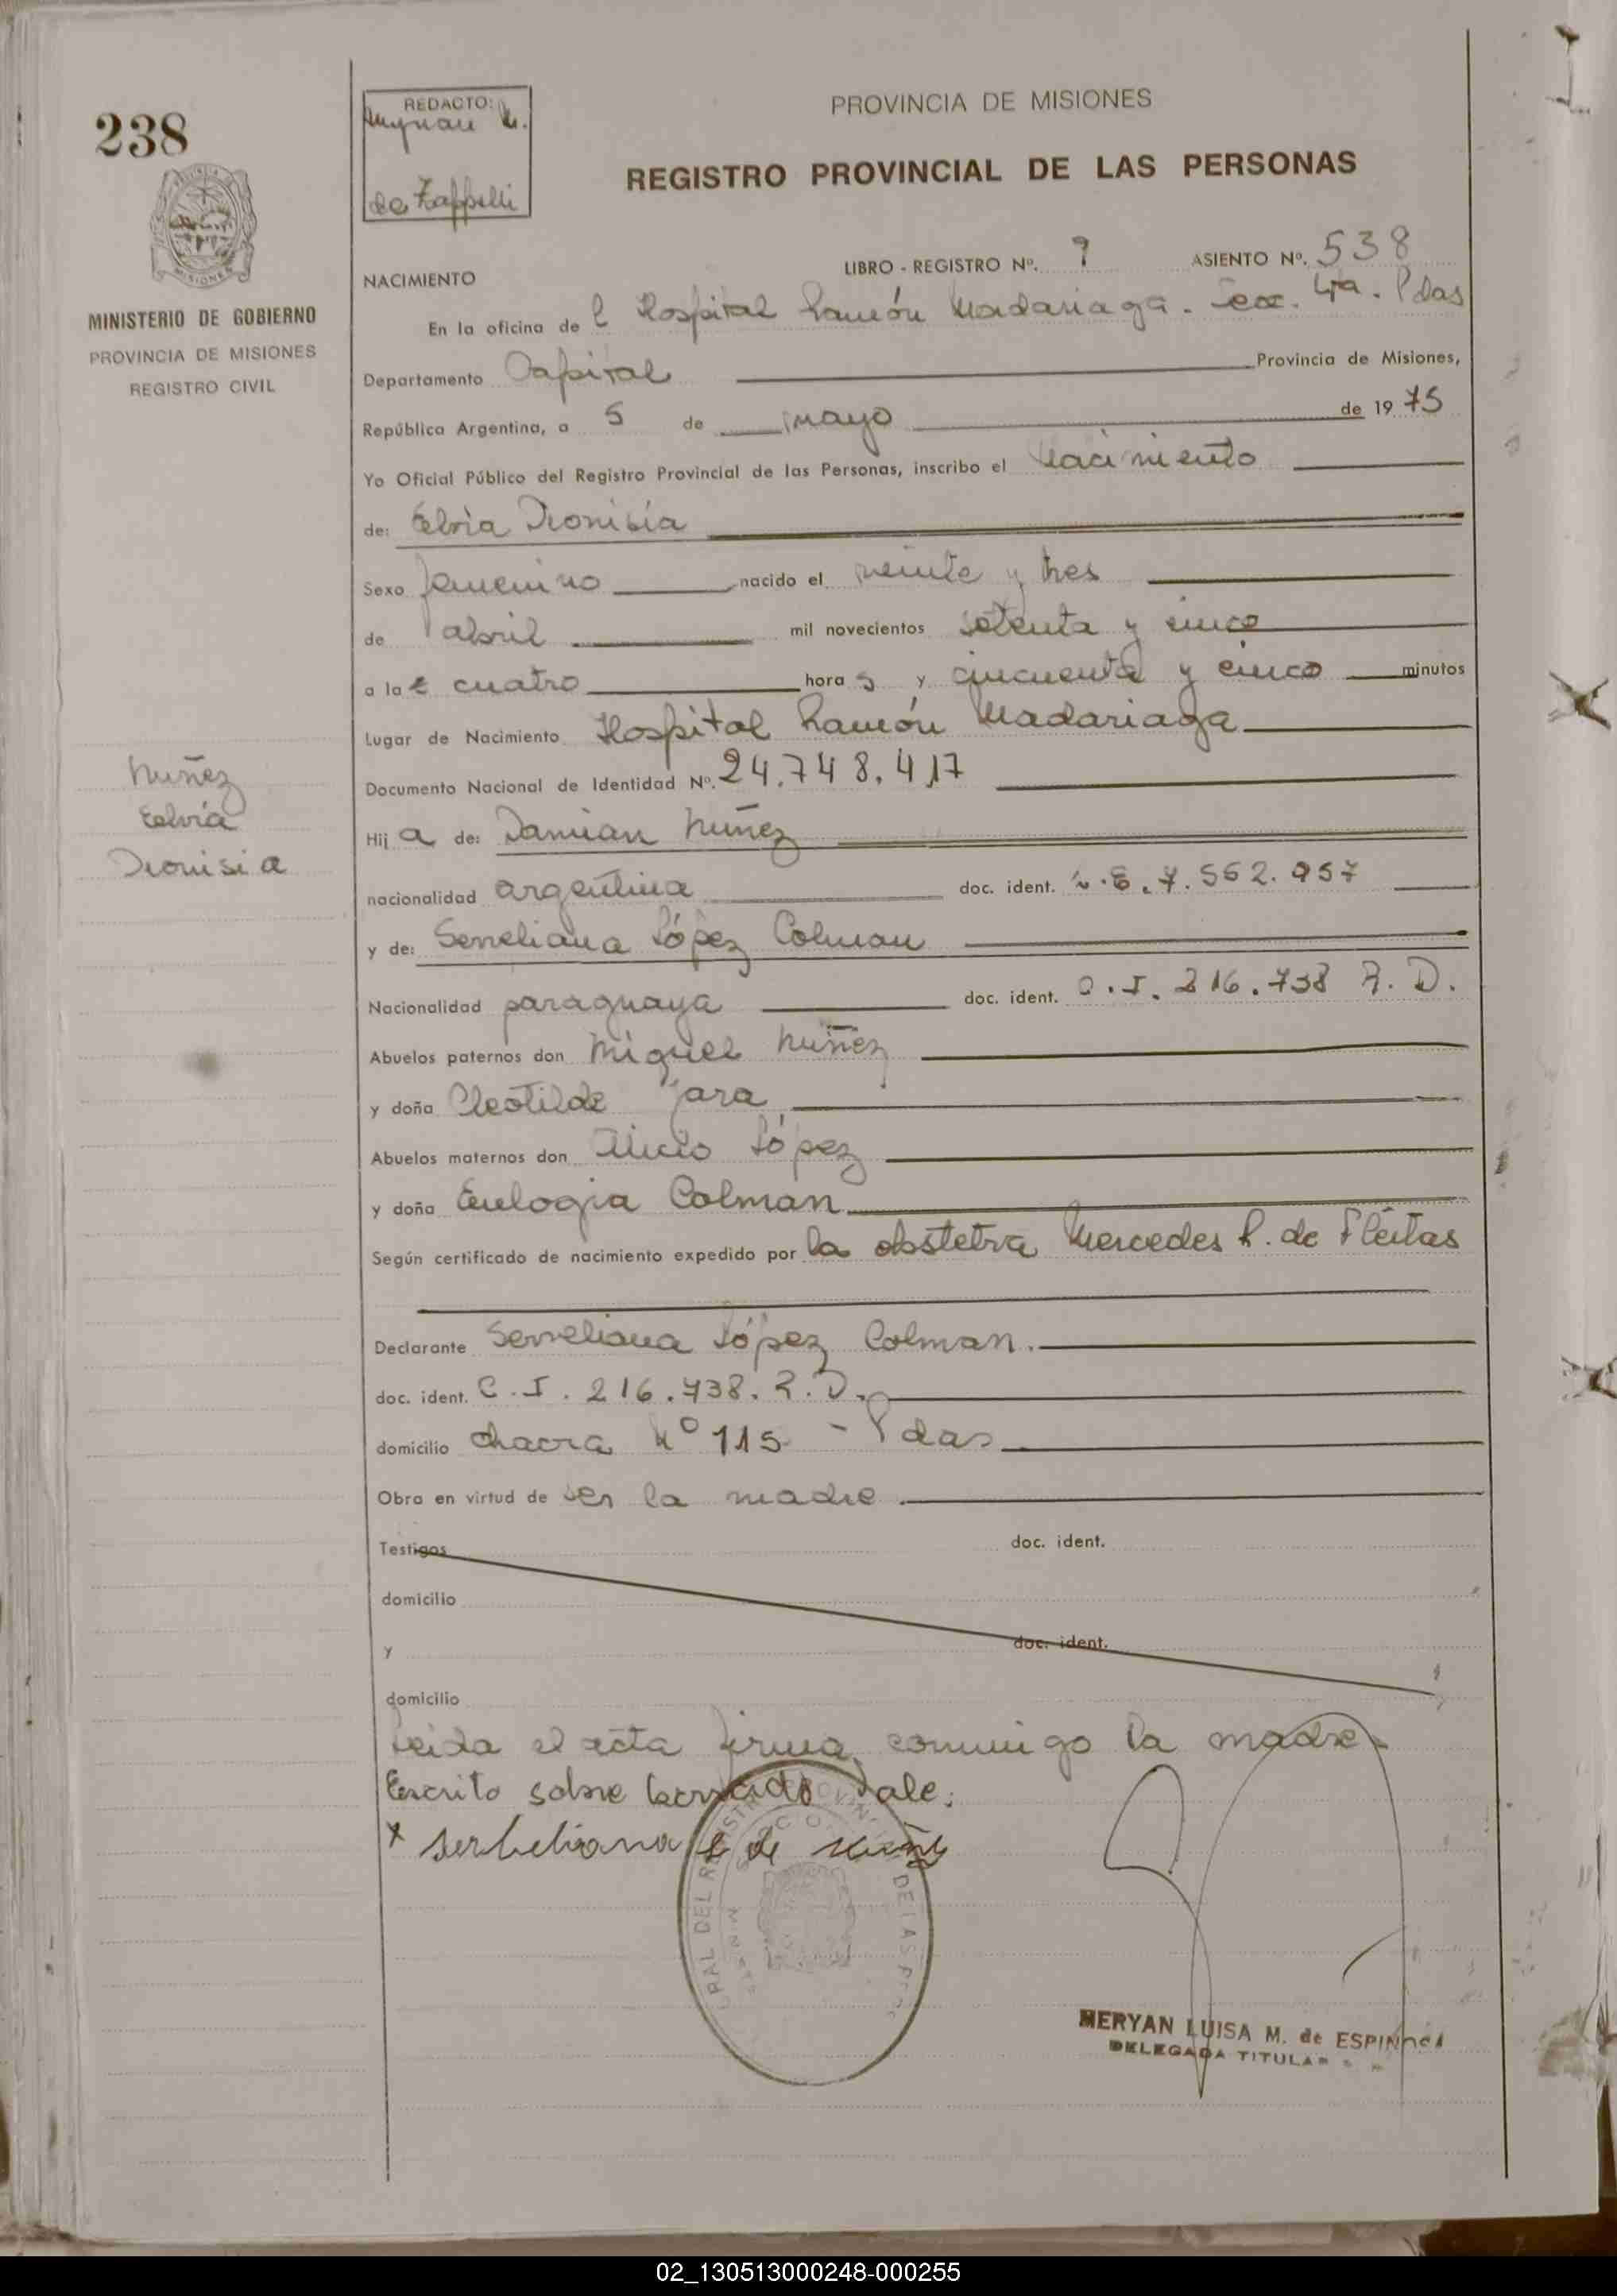 238
MINISTERIO DE GOBIERNO
PROVINCIA DE MISIONES
REGISTRO CIVIL
Nuñez
Elvia
Dionisia
REDACTO:
de Zappelli
PROVINCIA DE MISIONES
REGISTRO PROVINCIAL DE LAS PERSONAS
NACIMIENTO
LIBRO - REGISTRO Nº. ASIENTO Nº. 538
En la oficina de l Hospital Ramón Madariaga. Secc. 4ta. Pdas
Departamento Capital Provincia de Misiones,
República Argentina, a 5 de mayo de 1975
Yo Oficial Público del Registro Provincial de las Personas, inscribo el Nacimiento
de: Elvia Dionisia
Sexo femenino nacido el veinte y tres
de abril mil novecientos setenta y cinco
a las cuatro horas y cincuenta y cinco minutos
Lugar de Nacimiento Hospital Ramón Madariaga
Documento Nacional de Identidad Nº. 24.748.417
Hija de: Damian Nuñez
nacionalidad argentina doc. ident. 7.562.957
y de: Serveliana López Colman
Nacionalidad paraguaya doc. ident. C.I. 216.738 R.D.
Abuelos paternos don Miguel Nuñez
y doña Cleotilde Jara
Abuelos maternos don Alicio López
y doña Eulogia Colman
Según certificado de nacimiento expedido por la obstetra Mercedes R. de Fléitas
Declarante Serveliana López Colman.
doc. ident. C.I. 216.738. R.D.
domicilio chacra Nº 115 - Pdas
Obra en virtud de ser la madre
Testigos doc. ident.
domicilio
y doc. ident.
domicilio
Leida el acta firma conmigo la madre
Escrito sobre borrado Vale.
x Serbeliana L de Nuñez
MERYAN LUISA M. de ESPINOSA
DELEGADA TITULAR
02_130513000248-000255